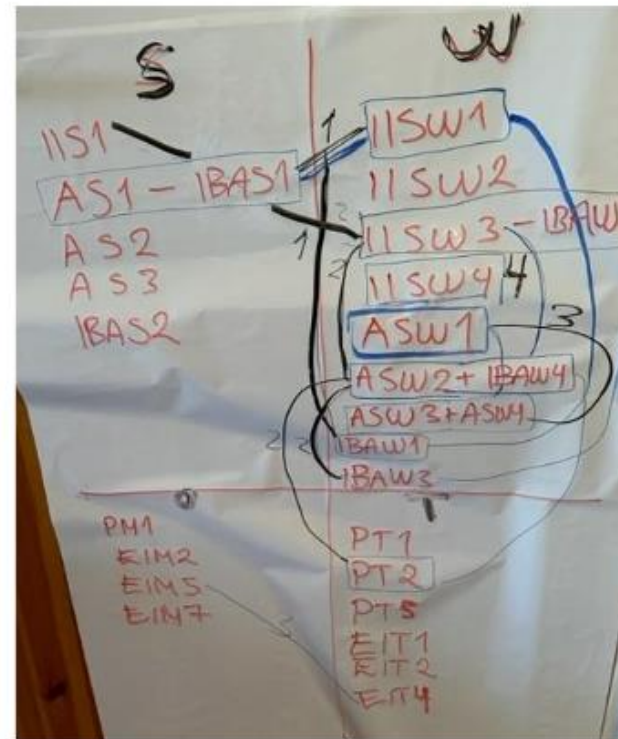 S
IIS1
AS1 - IBAS1
AS2
AS3
IBAS2
1
1
W
IISW1
IISW2
IISW3 - IBAW
IISW4
4
ASW1
3
ASW2 + IBAW4
ASW3 + ASW4
IBAW1
IBAW3
2
2
2
2
O
PM1
EIM2
EIM5
EIM7
3
T
PT1
PT2
PT5
EIT1
EIT2
EIT4